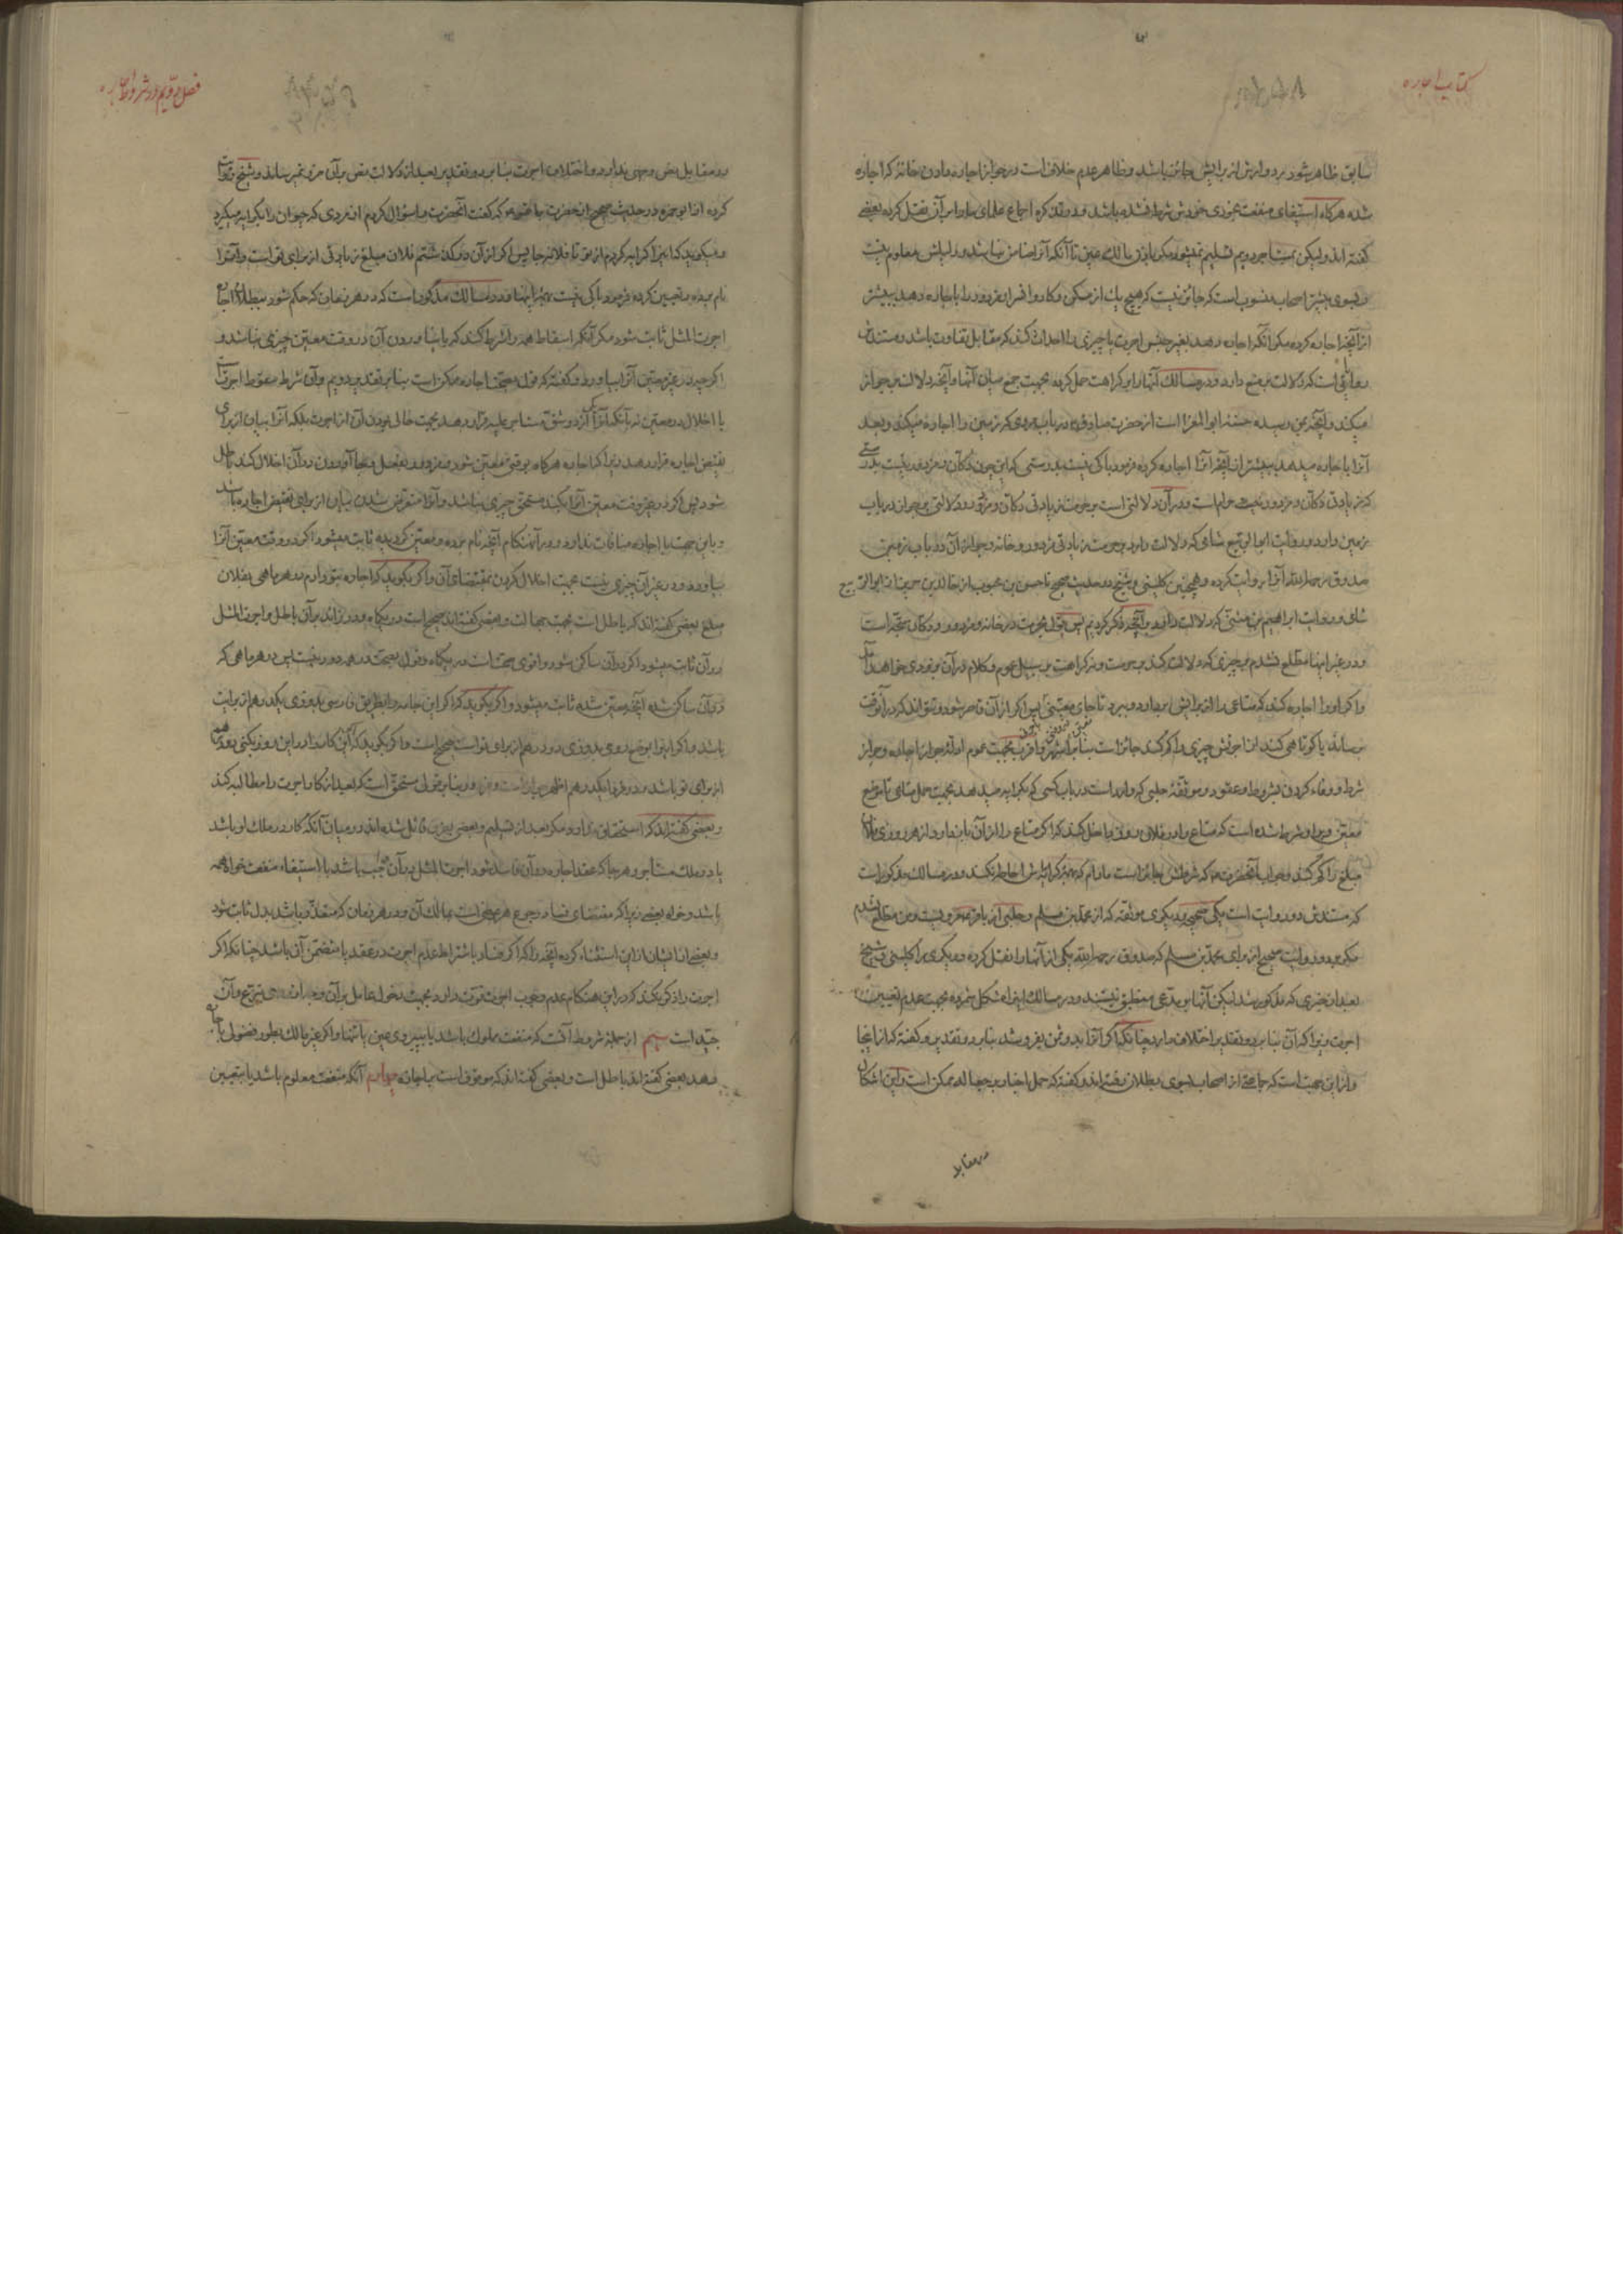 کتاب اجاره
سابق ظاهر شود برد وارش از برایش جائز باشد و ظاهر عدم خلاف است در جواز اجاره دادن خانه که اجاره
شده هرگاه استیفای منفعت بخودی خودش شرط نشده باشد و در تذکره اجماع علمای ما را بر آن نقل کرده بعضی
گفته‌اند ولیکن بمستاجر دویم تسلیم نمیشود مگر باذن مالک عین تا آنکه آنرا ضامن نباشد و دلیلش معلوم نیست
و بسوی بیشتر اصحاب منسوب است که جائز نیست که هیچ یک از مسکن و کاروانسرا و مزدور را باجاره دهد ببیشتر
از آنچه اجاره کرده مگر آنکه اجاره دهد بغیر جنس اجرت یا چیزی را احداث کند که مقابل تفاوت باشد و مستندش
روایاتی است که دلالت بر منع دارد و در مسالک آنها را بر کراهت حمل کرده بجهت جمع میان آنها و آنچه دلالت بر جواز
میکند و آنچه بمن رسیده حسنه ابوالمغرا است از حضرت صادق در باب مردی که زمین را اجاره میکند و بعد
آنرا باجاره میدهد ببیشتر از آنچه آنرا اجاره کرده فرمود باکی نیست بدرستی که این چون دکان و مزدور نیست بدرستی
که زیادتی دکان و مزدور حرام است و در آن دلالتی است بر حرمت زیادتی دکان و مزدور و دلالتی بر جواز در باب
زمین دارد و روایت ابوالربیع شامی که دلالت دارد بر حرمت زیادتی مزدور و خانه و جواز آن در باب زمین
صدوق رحمه الله آنرا روایت کرده و همچنین کلینی و شیخ در حدیث صحیح تا حسن بن محبوب از خالد بن جریر از ابوالربیع
شامی و روایت ابراهیم بن مثنی که دلالت دارد بر آنچه ذکر کردیم پس قول بحرمت در خانه و مزدور و دکان متجه است
و در غیر اینها مطلع نشدم بر چیزی که دلالت کند بر حرمت و نه کراهت بر سبیل عموم و کلام در آن بزودی خواهد آمد
و اگر او را اجاره کند که متاعی را از برایش بردارد و ببرد تا جای معینی پس اگر از آن قاصر شود و نتواند که در آنوقت
برساند یا کوتاهی کند از اجرتش چیزی را کم کند جائز است بنابر اشهر و اقرب بجهت عموم ادله جواز اجاره و جواز
شرط و وفاء کردن بشروط و عقود و موثقه حلبی که وارد است در باب کسی که بکرایه میدهد بجهت حمل متاعی تا موضع
معین و بر او شرط شده است که متاع را در فلان روز داخل کند که اگر متاع را از آن باز دارد از هر روزی فلان
مبلغ را کم کند و جواب آنحضرت که شرطش جائز است مادام که همه کرایه‌اش احاطه نکند و در مسالک مذکور است
که مستندش دو روایت است یکی صحیح و دیگری موثقه که از محمد بن مسلم و حلبی از باقر مروی است و من مطلع نشدم
مگر بر دو روایت صحیح از برای محمد بن مسلم که صدوق رحمه الله یکی از آنها را نقل کرده و دیگری را کلینی و شیخ
بعد از خبری که مذکور شد لیکن آنها بر مدعی منطبق نیستند و در مسالک اینرا مشکل شمرده بجهت عدم تعیین
اجرت زیرا که آن بنابر دو تقدیر اختلاف دارد چنانکه اگر آنرا بدو ثمن بفروشد بنابر دو تقدیر و گفته که از اینجا
و از این جهت است که جماعتی از اصحاب بسوی بطلان رفته‌اند و گفته که حمل اخبار بر جعاله ممکن است و این اشکال
در مقابل
فصل دویم در شروط اجاره
در مقابل نص وجهی ندارد و اختلاف اجرت بنابر دو تقدیر بعد از دلالت نص بر آن ضرر نمیرساند و شیخ روایت
کرده از ابو حمزه در حدیث صحیح از حضرت باقر که گفت آنحضرت را سؤال کردم از مردی که حیوان را بکرایه میگیرد
و میگوید که اینرا کرایه کردم از تو تا فلانه جا پس اگر از آن در گذشتم فلان مبلغ زیادتی از برای تو است و آنرا
نام برده و تعیین کرده فرمود باکی نیست بهمه اینها و در مسالک مذکور است که در هر زمان که حکم شود ببطلان اجاره
اجرت المثل ثابت شود مگر آنکه اسقاط همه را شرط کند که بنابر نیاوردن آن در وقت معین چیزی نباشد و
اگر چه در غیر معین آنرا بیاورد و گفته که قول بصحت اجاره ممکن است بنابر تقدیر دویم و آن شرط سقوط اجرت است
با اخلال در معین نه بآنکه آنرا یکی از دو شق مستاجر علیه قرار دهد بجهت خالی بودن آن از اجرت بلکه آنرا بیان از برای
نقیض اجاره قرار دهد زیرا که اجاره هرگاه بوقتی معین شود و مزدور بفعل و بجا آوردن در آن اخلال کند باطل
شود پس اگر در غیر وقت معین آنرا بکند مستحق چیزی نباشد و آنرا متعرض شدن بیان از برای نقیض اجاره باشد
و باین جهت با اجاره منافات ندارد و در آنهنگام آنچه نام برده و معین گردیده ثابت میشود اگر در وقت معین آنرا
بیاورد و در غیر آن چیزی نیست بجهت اخلال کردن بمقتضای آن و اگر بگوید که اجاره بتو دادم در هر ماهی بفلان
مبلغ بعضی گفته‌اند که باطل است بجهت جهالت و بعضی گفته‌اند صحیح است در یکماه و در زائد بر آن باطل و اجرت المثل
در آن ثابت میشود اگر در آن ساکن شود و اقوی صحت است در یکماه و قول بصحت در همه دور نیست پس در هر ماهی که
در آن ساکن شده آنچه معین شده ثابت میشود و اگر بگوید که اگر این جامه را بطریق فارسی بدوزی یکدرهم از برایت
باشد و اگر اینرا بوضع رومی بدوزی دو درهم از برای تو است صحیح است و اگر بگوید که این کار را در این روز بکنی دو درهم
از برای تو باشد و در فردا یکدرهم اظهر جواز است و بنابر قولی مستحق است که بعد از کار اجرت را مطالبه کند
و بعضی گفته‌اند که استحقاق ندارد مگر بعد از تسلیم و بعضی بفرق قائل شده‌اند در میان آنکه کار در ملک او باشد
یا در ملک مستاجر و هر جا که عقد اجاره در آن فاسد شود اجرت المثل در آن واجب باشد با استیفاء منفعت خواه همه
باشد و خواه بعض زیرا که مقتضای فساد رجوع هر عوض است بمالک آن و در هر زمان که متعذر باشد بدل ثابت شود
و بعضی از ایشان از این استثناء کرده آنچه را که اگر فساد باشتراط عدم اجرت در عقد یا متضمن آن باشد چنانکه اگر
اجرت را ذکر نکند که در این هنگام عدم وجوب اجرت قوت دارد بجهت دخول عامل بر آن و آن
جید است سیم از جمله شروط آنست که منفعت مملوک باشد یا بپیروی عین یا بتنها و اگر غیر مالک بطور فضولی باجاره
دهد بعضی گفته‌اند باطل است و بعضی گفته‌اند که موقوف است باجازه چهارم آنکه منفعت معلوم باشد یا بتعیین